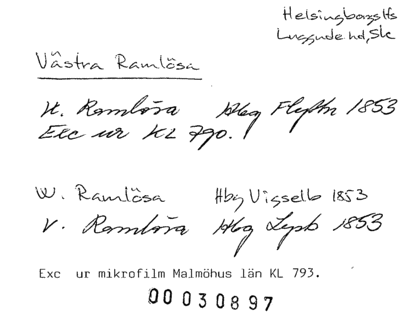 Helsingborgs lfs
Luggude hd, Skå
Västra Ramlösa
W. Ramlösa Hbg Flyttn 1853
Exc ur KL 790.
W. Ramlösa Hbg Vigselb 1853
V. Ramlösa Hbg Lysb 1853
Exc ur mikrofilm Malmöhus län KL 793.
00030897